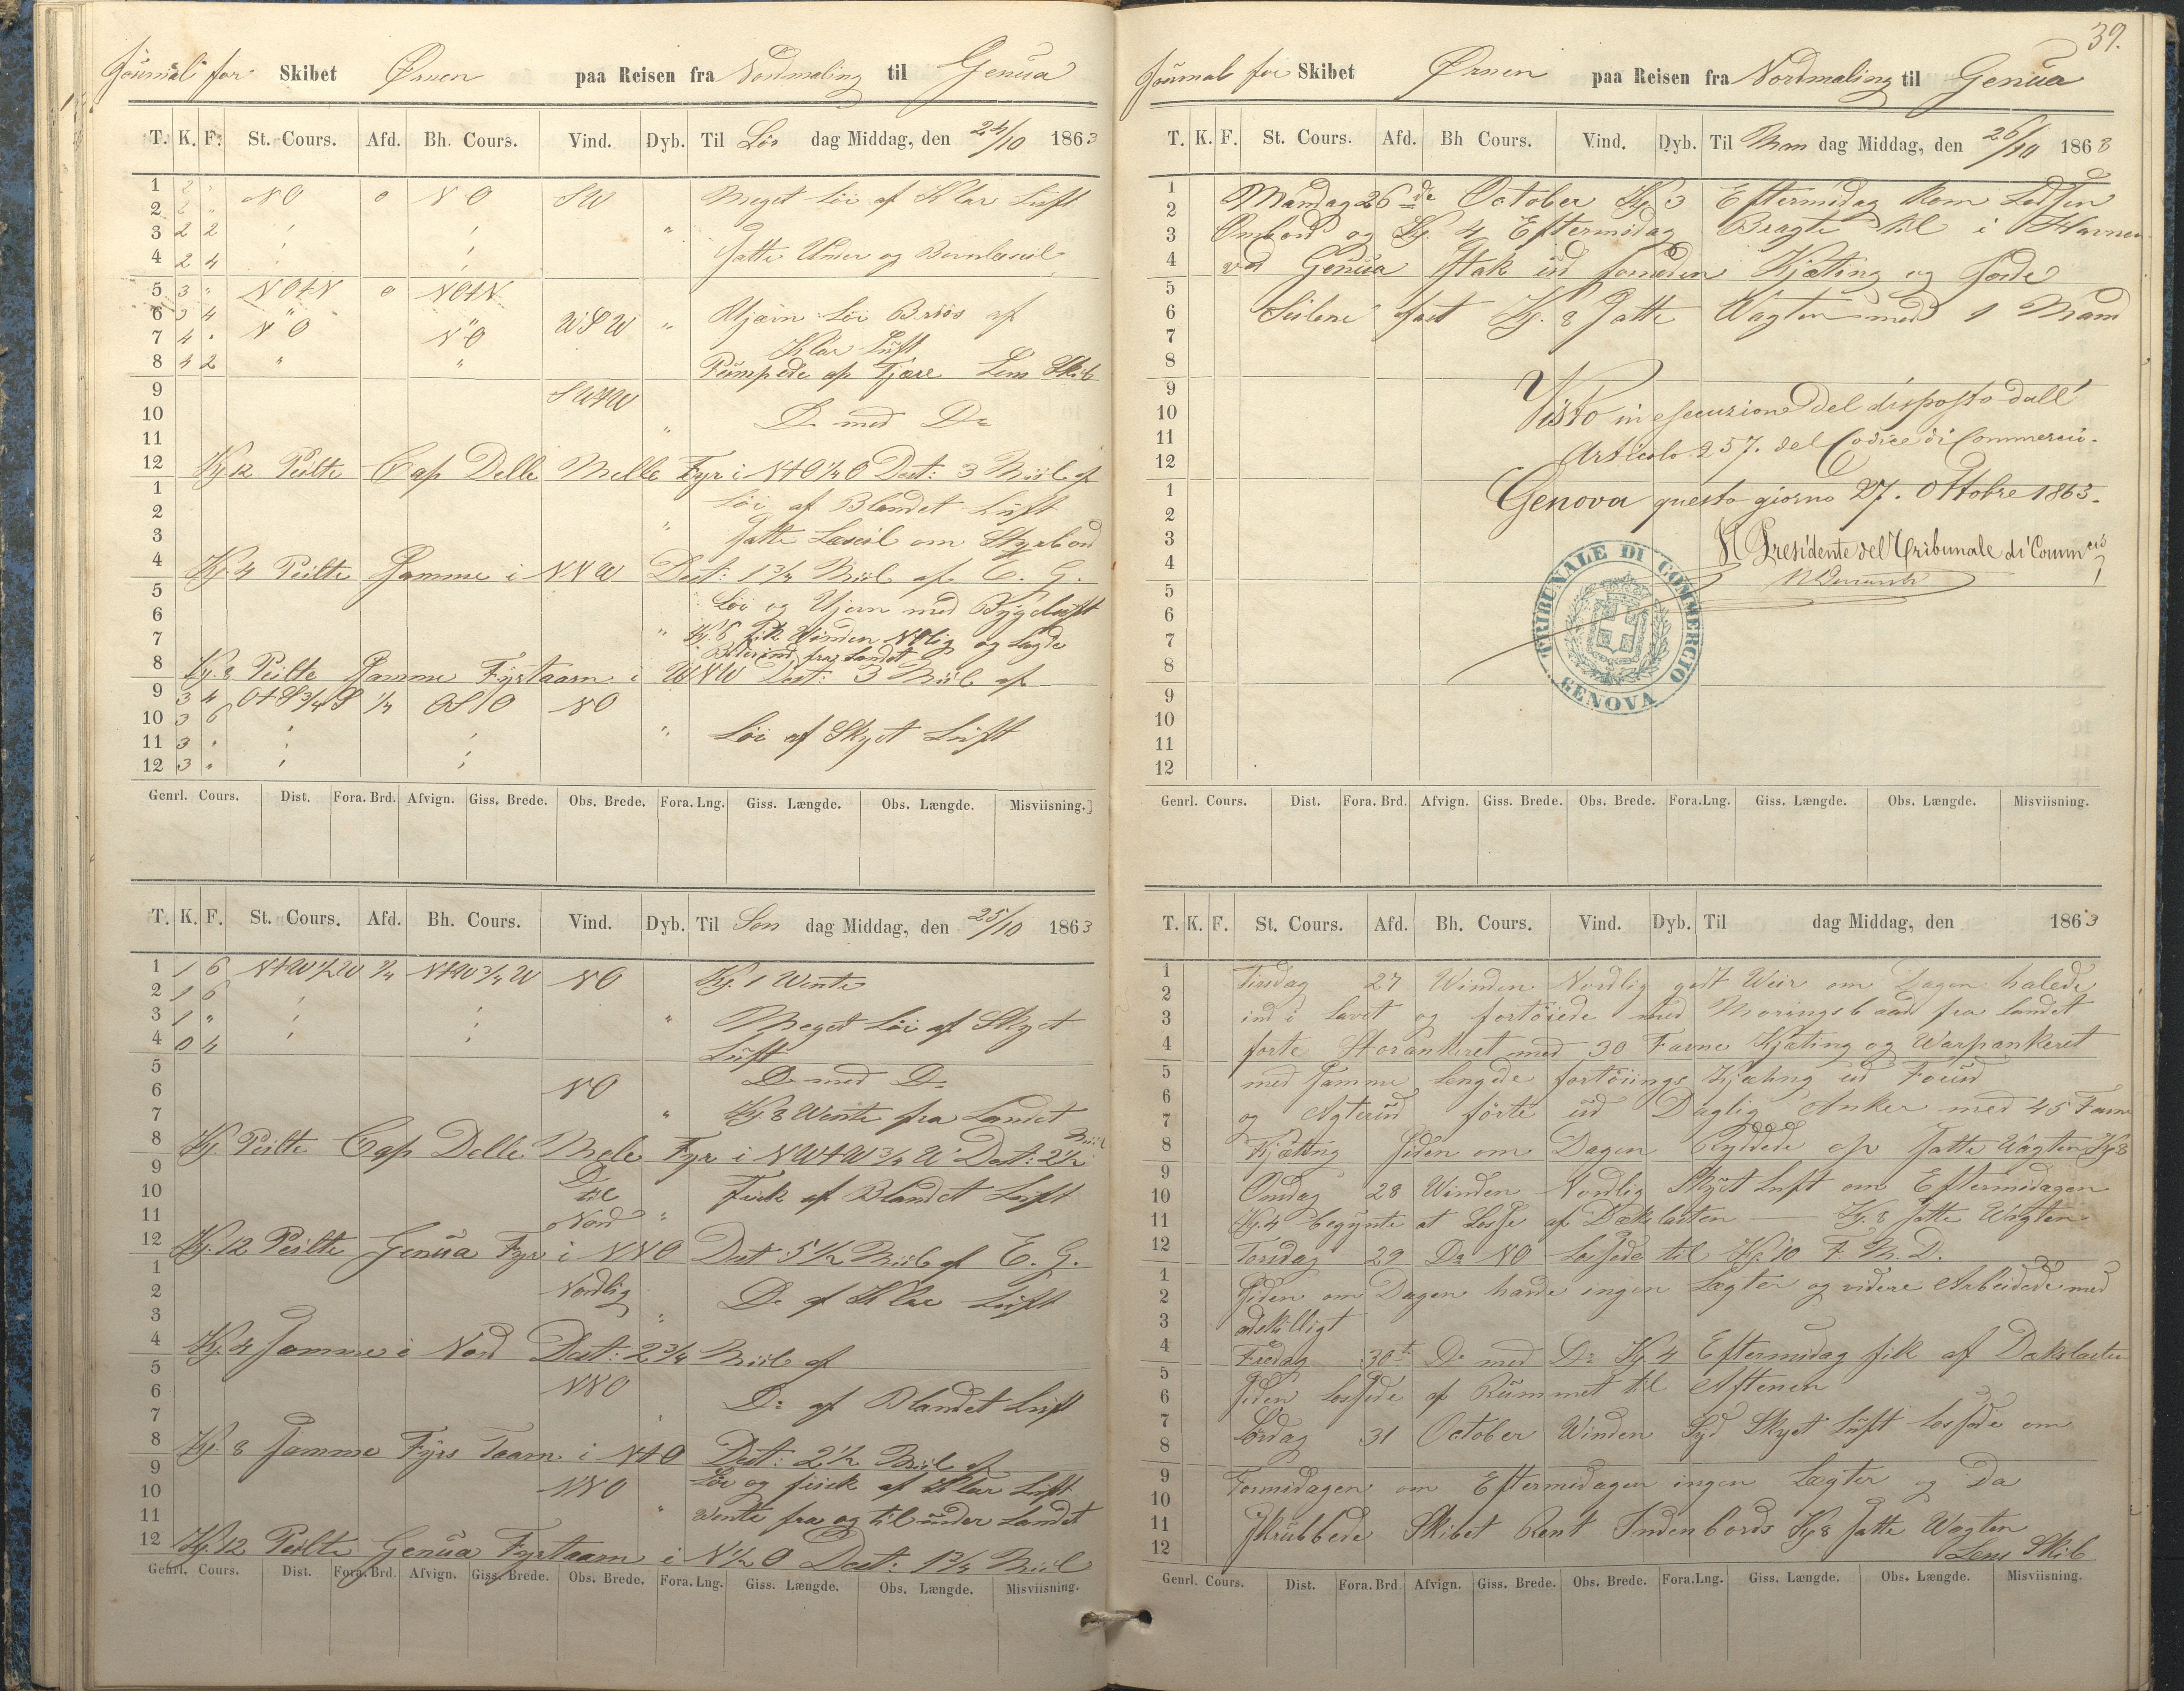 Journal for Skibet Ørnen paa Reisen fra Nordmaling til Genua
T. K. F. St. Cours. Afd. Bh. Cours. Vind. Dyb. Til Løv dag Middag, den 24/10 1863
1 2 " NO o NO SW Meget Löi af Klar Luft
2 2 "
3 2 2 "
4 2 4 Satte Under og Bovnleseil
5 3 " NOtN o NOtN
6 3 4 WSW " Ujævn Löi Briis af
7 4 " NO NO Klar Luft
8 4 2 " " Pumpede af Fjære Lens Skib
9 SWtW
10 D. med Do
11 "
12 Kl. 12 Peilte Cap Delle Melle Fyr i NtO 1/4 O Dest: 3 Miil af
1 Löi af Blandet Luft
2
3 " Satte Læseil om Styrbord
4 Kl. 4 Peilte Samme i NNW Dest: 1 3/4 Miil af E. G.
5 Löi og Ujevn med Bygeluft
6
7 " Kl. 6 fik Winden NOlig og Lagde
Bidevind fra Landet
8 Kl. 8 Peilte Samme Fyrtaarn i WNW Dest: 3 Miil af
9 3 4 OtS 3/4 S 1/4 OSO NO
10 3 6
11 3 " " Löi af Skyet Luft
12 3 "
Genrl. Cours. Dist. Fora. Brd. Afvign. Giss. Brede. Obs. Brede. Fora. Lng. Giss. Længde. Obs. Længde. Misviisning.
T. K. F. St. Cours. Afd. Bh. Cours. Vind. Dyb. Til Søn dag Middag, den 25/10 1863
1 1 6 NtW 1/2 W 1/4 NtW 3/4 W NO Kl. 1 Wente
2 1 6
3 1 " " Meget Löi af Skyet
4 0 4 Luft
5 D. med Do
6 NO
7 " Kl. 8 Wente fra Landet
8 Kl. Peilte Cap Delle Mele Fyr i NWtW 3/4 W Dest: 2 1/2 Miil
9 Do
10 til Frisk af Blandet Luft
11 Nord "
12 Kl. 12 Peilte Genua Fyr i NNO Dest 5 1/2 Miil af E. G.
1 Nordlig
2 Do af Klar Luft
3 "
4 Kl. 4 Samme i Nord Dest: 2 3/4 Miil af
5 NNO
6 Do af Blandet Luft
7
8 Kl. 8 Samme Fyrs Taarn i NtO Dest: 2 1/2 Miil af
9 Löi og frisk af Klar Luft
10 NNO
11 " Wente fra og til under Landet
12 Kl. 12 Peilte Genua Fyrtaarn i N 1/2 O Dest: 1 3/4 Miil
Genrl. Cours. Dist. Fora. Brd. Afvign. Giss. Brede. Obs. Brede. Fora. Lng. Giss. Længde. Obs. Længde. Misviisning.
39.
Journal for Skibet Ørnen paa Reisen fra Nordmaling til Genua
T. K. F. St. Cours. Afd. Bh Cours. Vind. Dyb. Til Man dag Middag, den 26/10 1863
1 Mandag 26de October Kl. 3 Eftermidag kom Lodsen
2
3 Ombord og Kl. 4 Eftermidag Bragte til i Havnen
4 ved Genua Stak ud Kjæting og Gorde
5
6 Seilene fast Kl. 8 Satte Wagten med 1 Mand
7
8
9 Visto in esecuzione del disposto dall'
10
11 Articolo 257. del Codice di Commercio.
12
1 Genova questo giorno 27. Ottobre 1863.
2
3 Il Presidente del Tribunale di Commercio
4
5
6
7
8
9
10
11
12
TRIBUNALE DI COMMERCIO
GENOVA
Genrl. Cours. Dist. Fora. Brd. Afvign. Giss. Brede. Obs. Brede. Fora. Lng. Giss. Længde. Obs. Længde. Misviisning.
T. K. F. St. Cours. Afd. Bh. Cours. Vind. Dyb. Til dag Middag, den 1863
1 Tirsdag 27 Winden Nordlig godt Weir om Dagen halede
2
3 ind i Lavet og fortöiede med Moringsbaad fra Landet
4 forte Storankeret med 30 Favne Kjæting og Warpankeret
5 med Samme Lengde fortöiings Kjæting ud Forud
6
7 og Agterud förte ud Daglig Anker med 45 Favne
8 Kjætting Siden om Dagen Ryddede op Satte Wagten Kl 8
9
10 Onsdag 28 Winden Nordlig Skyet Luft om Eftermidagen
11 Kl. 4 begynte at Losse af Dækslasten — Kl. 8 Satte Wagten
12 Torsdag 29 Do NO Lossede til Kl. 10 F. M. D.
1
2 Siden om Dagen havde ingen Lægter og videre Arbeidede med
3 adskilligt
4 Fredag 30t Do med Do Kl 4 Eftermidag fik af Dækslasten
5
6 Siden lossede af Rummet til Aftenen
7
8 Lördag 31 October Winden Syd Skyet Luft lossede om
9
10 Formidagen om Eftermidagen ingen Lægter og Da
11
12 Skrubbede Skibet Rent Indenbords Kl 8 Satte Wagten
Lens Skib
Genrl. Cours. Dist. Fora. Brd Afvign. Giss. Brede. Obs. Brede. Fora. Lng. Giss. Længde. Obs. Længde. Misviisning.